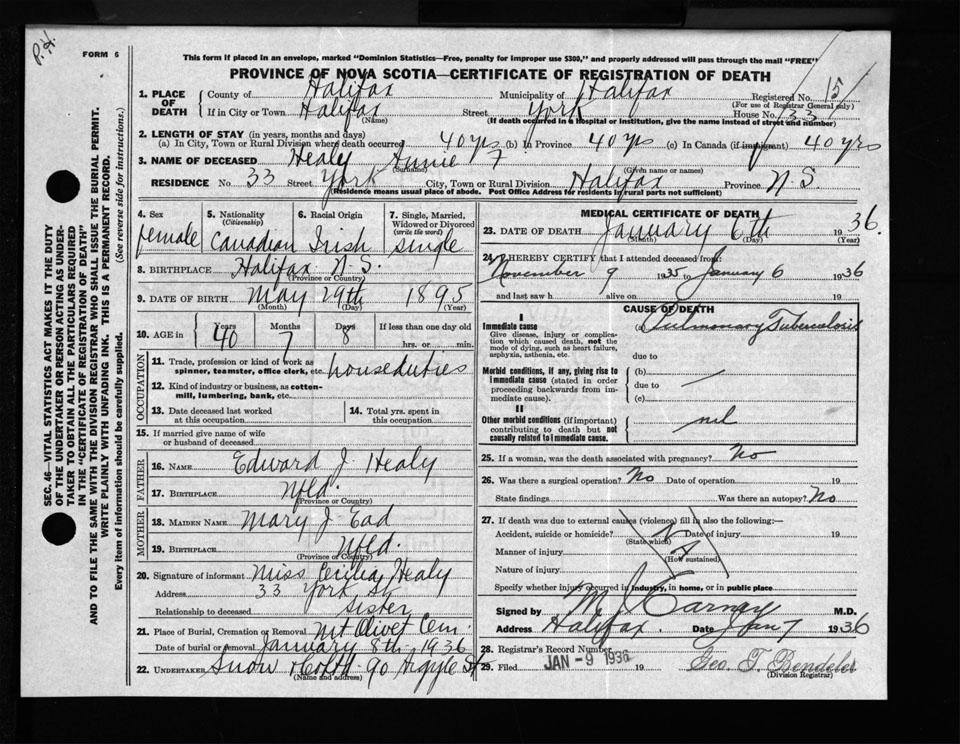 P.H.
FORM 6
This form if placed in an envelope, marked "Dominion Statistics—Free, penalty for improper use $300," and properly addressed will pass through the mail "FREE"
PROVINCE OF NOVA SCOTIA—CERTIFICATE OF REGISTRATION OF DEATH
SEC. 46—VITAL STATISTICS ACT MAKES IT THE DUTY
OF THE UNDERTAKER OR PERSON ACTING AS UNDER-
TAKER TO OBTAIN ALL THE PARTICULARS REQUIRED
IN THE "CERTIFICATE OF REGISTRATION OF DEATH"
AND TO FILE THE SAME WITH THE DIVISION REGISTRAR WHO SHALL ISSUE THE BURIAL PERMIT.
WRITE PLAINLY WITH UNFADING INK. THIS IS A PERMANENT RECORD.
Every item of information should be carefully supplied. (See reverse side for instructions.)
1. PLACE OF DEATH
County of Halifax Municipality of Halifax Registered No. 15
(For use of Registrar General only)
If in City or Town Halifax Street York House No. 33
(Name) (If death occurred in a hospital or institution, give the name instead of street and number)
2. LENGTH OF STAY (in years, months and days)
(a) In City, Town or Rural Division where death occurred 40 yrs (b) In Province 40 yrs (c) In Canada (if immigrant) 40 yrs
3. NAME OF DECEASED Healy Annie F
(Surname) (Given name or names)
RESIDENCE No 33 Street York City, Town or Rural Division Halifax Province N.S.
(Residence means usual place of abode. Post Office Address for residents in rural parts not sufficient)
4. Sex
female
5. Nationality
(Citizenship)
Canadian
6. Racial Origin
Irish
7. Single, Married,
Widowed or Divorced
(write the word)
single
8. BIRTHPLACE Halifax N.S.
(Province or Country)
9. DATE OF BIRTH May 29th 1895
(Month) (Day) (Year)
10. AGE in
Years Months Days If less than one day old
40 7 8 hrs. or min.
OCCUPATION
11. Trade, profession or kind of work as
spinner, teamster, office clerk, etc. houseduties
12. Kind of industry or business, as cotton-
mill, lumbering, bank, etc.
13. Date deceased last worked
at this occupation
14. Total yrs. spent in
this occupation
15. If married give name of wife
or husband of deceased
FATHER
16. NAME Edward J. Healy
17. BIRTHPLACE Nfld.
(Province or Country)
MOTHER
18. MAIDEN NAME Mary J. Ead
19. BIRTHPLACE Nfld.
(Province or Country)
20. Signature of informant Miss Cecilia Healy
Address 33 York St.
Relationship to deceased sister
21. Place of Burial, Cremation or Removal Mt Olivet Cem.
Date of burial or removal January 8th 1936
22. UNDERTAKER Snow & Co Ltd. 90 Argyle St
(Name and address)
MEDICAL CERTIFICATE OF DEATH
23. DATE OF DEATH January 6th 1936.
(Month) (Day) (Year)
24. I HEREBY CERTIFY that I attended deceased from:
November 9 1935 to January 6 1936
and last saw h alive on 19
CAUSE OF DEATH
I
Immediate cause
Give disease, injury or complica-
tion which caused death, not the
mode of dying, such as heart failure,
asphyxia, asthenia, etc.
(a) Pulmonary Tuberculosis
due to
Morbid conditions, if any, giving rise to
immediate cause (stated in order
proceeding backwards from im-
mediate cause).
(b)
due to
(c)
II
Other morbid conditions (if important)
contributing to death but not
causally related to immediate cause.
nil
25. If a woman, was the death associated with pregnancy? No
26. Was there a surgical operation? No Date of operation 19
State findings Was there an autopsy? No
27. If death was due to external causes (violence) fill in also the following:—
Accident, suicide or homicide? Date of injury 19
(State which)
Manner of injury
(How sustained)
Nature of injury
Specify whether injury occurred in industry, in home, or in public place
Signed by M J Carney M.D.
Address Halifax. Date Jan 7 1936
28. Registrar's Record Number
29. Filed JAN - 9 1936 19 Geo. T. Bendelei
(Division Registrar)